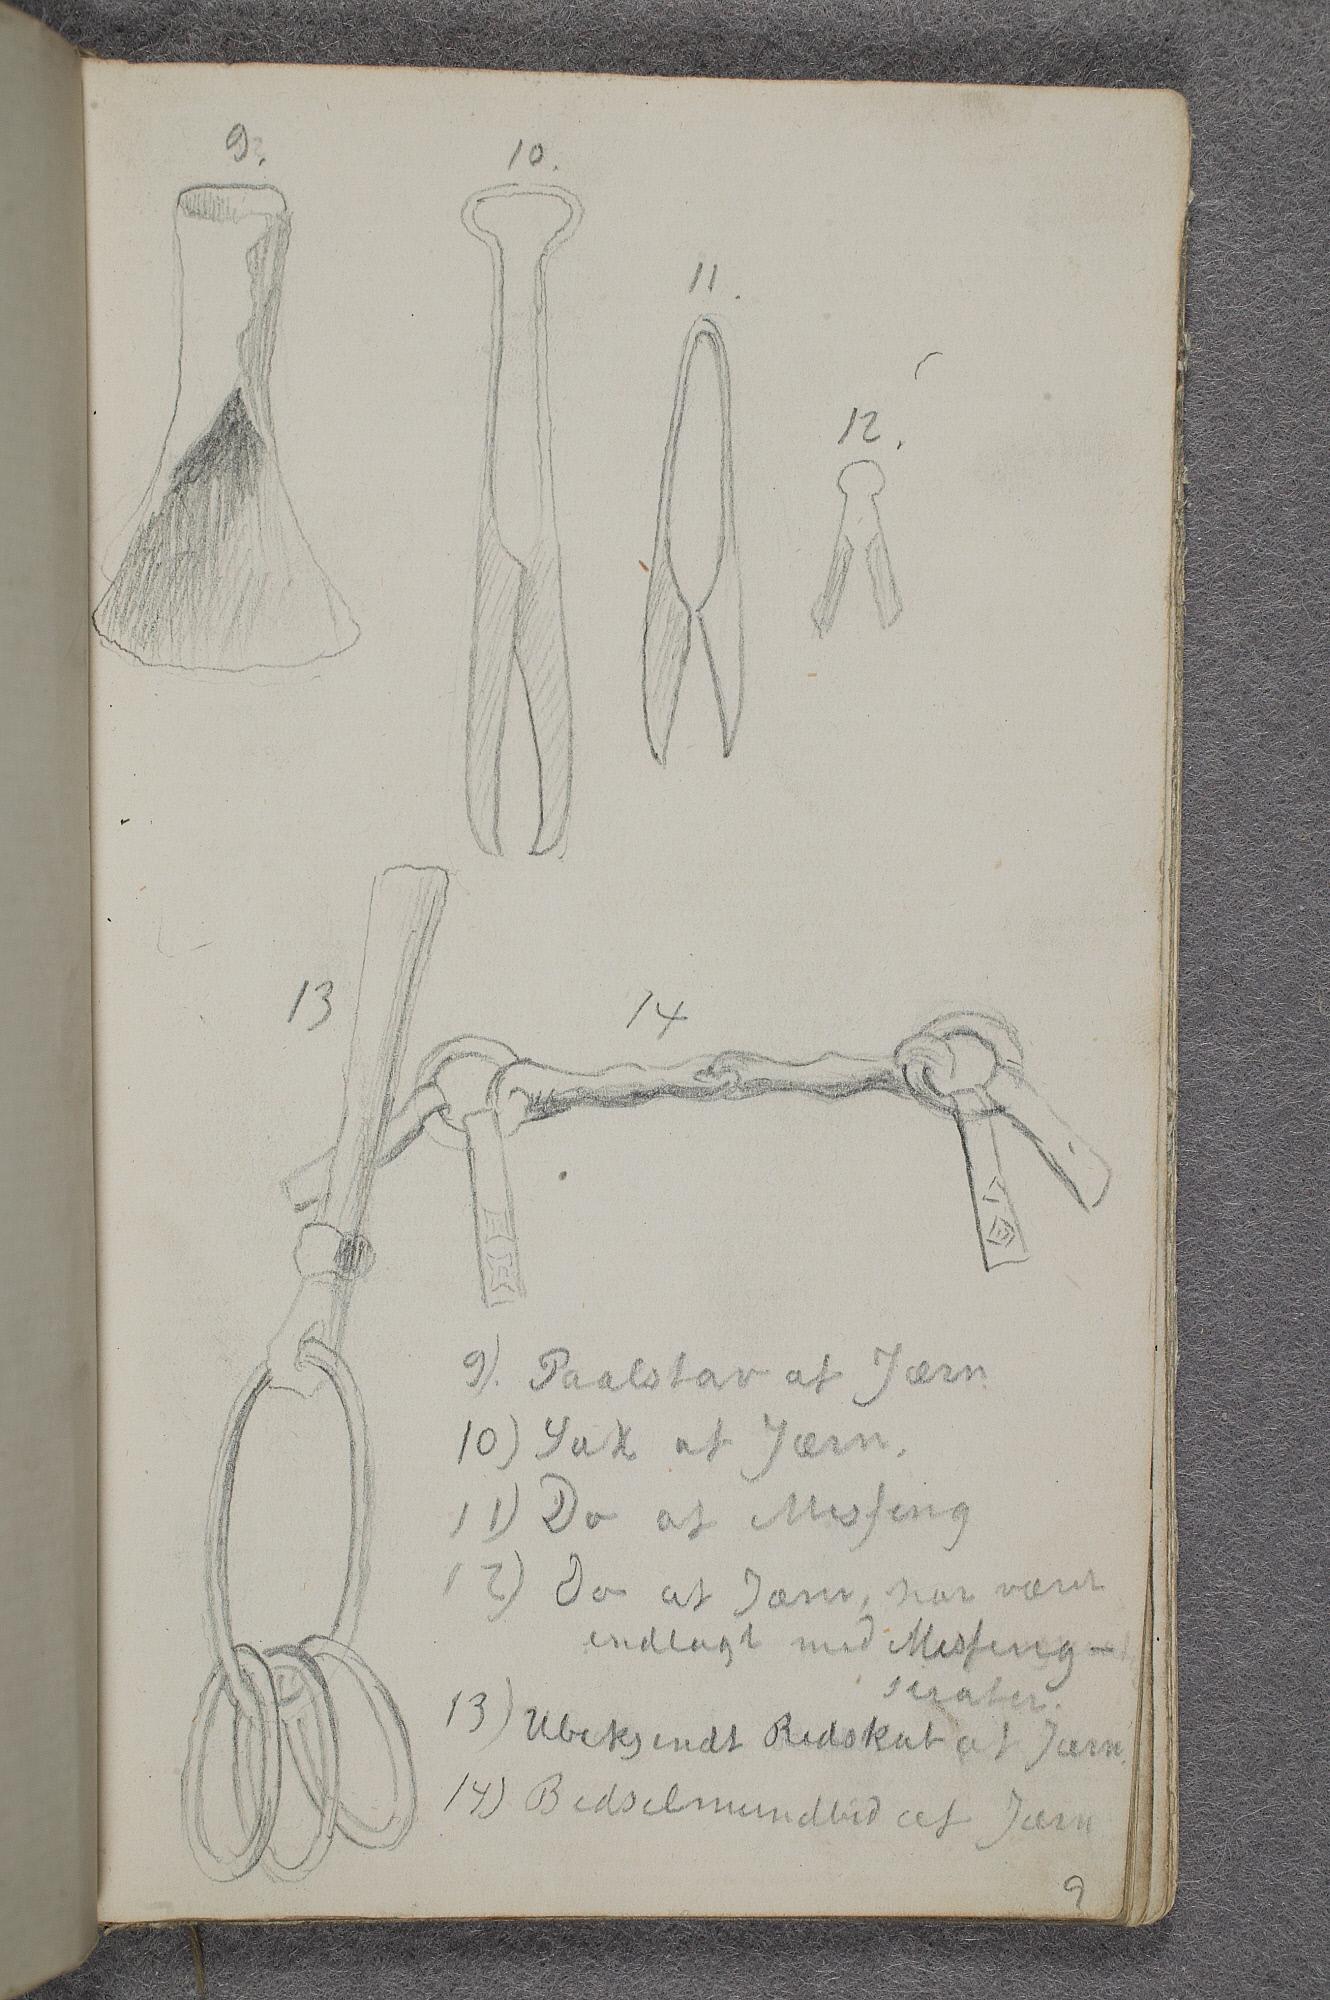 9.
10.
11.
12.
13
14
9). Paalstav af Jærn
10) Sax af Jærn.
11) Do af Mesfing
12) Do af Jærn, har været
indlagt med Mesfing-
13) Ubekjendt Redskab af Jærn.
14) Bedselmundbid af Jærn
9